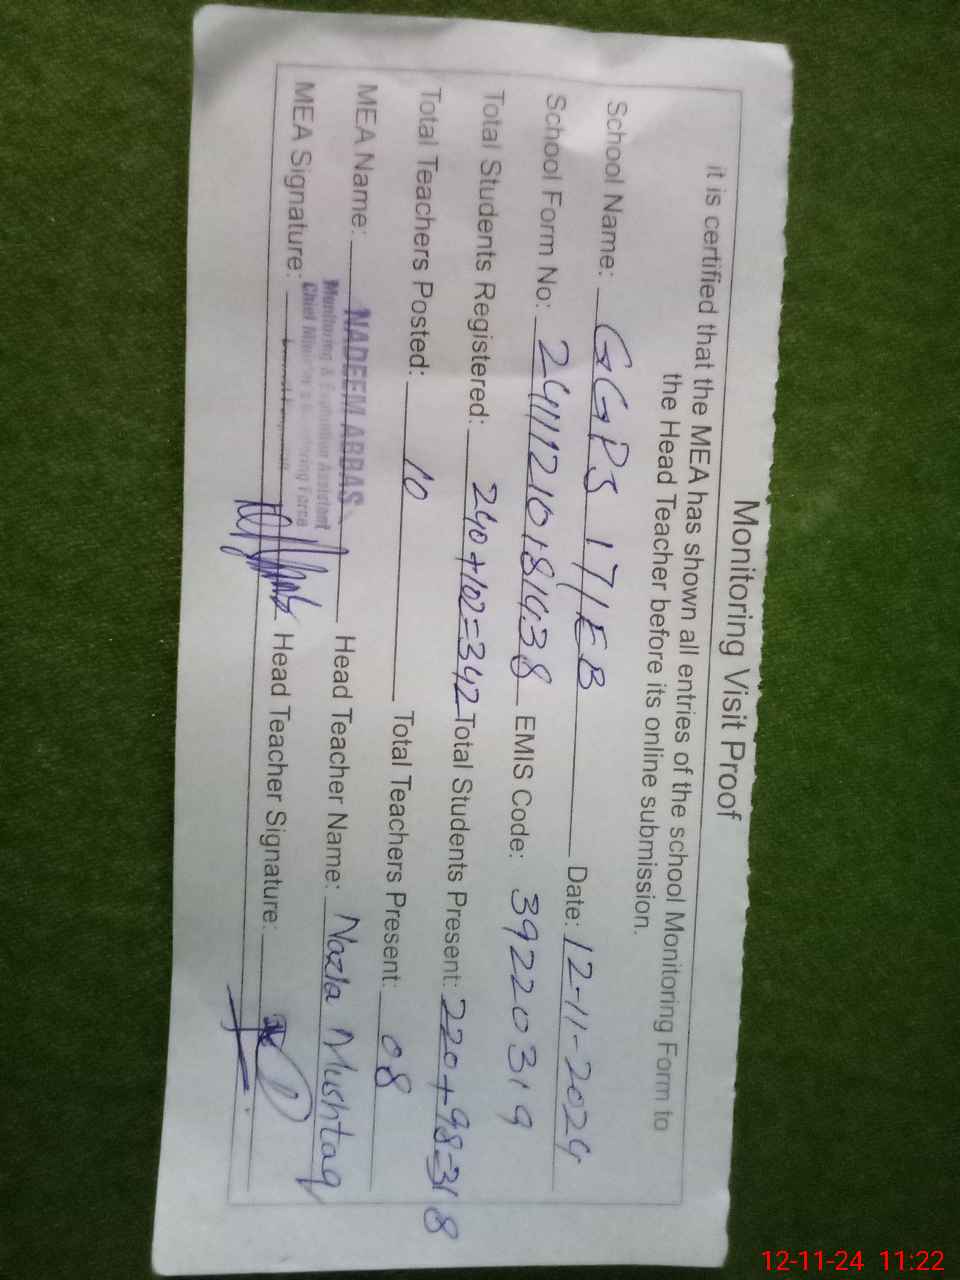 Monitoring Visit Proof
it is certified that the MEA has shown all entries of the school Monitoring Form to
the Head Teacher before its online submission.
School Name: GGPS 17/EB Date: 12-11-2024
School Form No: 24111210181438 EMIS Code: 39220319
Total Students Registered: 240+102=342 Total Students Present: 220+98=318
Total Teachers Posted: 10 Total Teachers Present: 08
MEA Name: NADEEM ABBAS Head Teacher Name: Nazla Mushtaq
Monitoring & Evaluation Assistant
Chief Minister's Monitoring Force
MEA Signature: Head Teacher Signature:
12-11-24 11:22